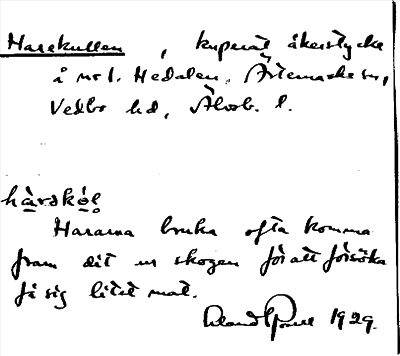 Harekullen, kuperat åkerstycke
å nr 1. Hedalen, Ärtemarks sn,
Vedbo hd, Älvsb. l.
hàrakúl
Hararna bruka ofta komma
fram dit ur skogen för att försöka
få sig litet mat.
1929.